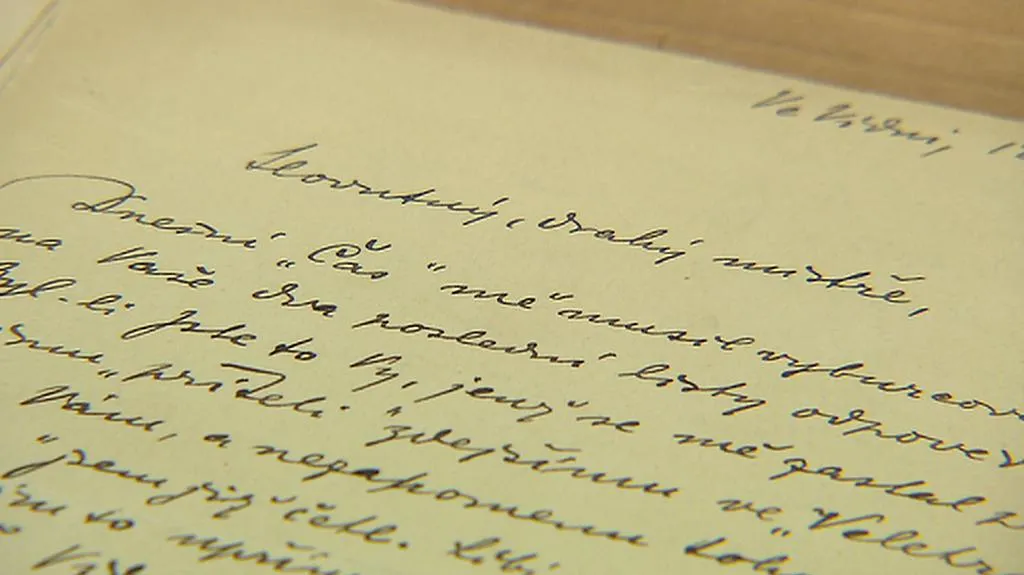 Ve Vídni, 1
Slovutný, drahý mistře,
Dnešní „Čas“ mě musil vyburcov
na Vaše dva poslední listy odpově
Byl-li jste to Vy, jenž se mě zastal
příteli zdejšímu ve „Veletr
Vám, a nezapomenu toh
jsem již četl. Libi
to upřím